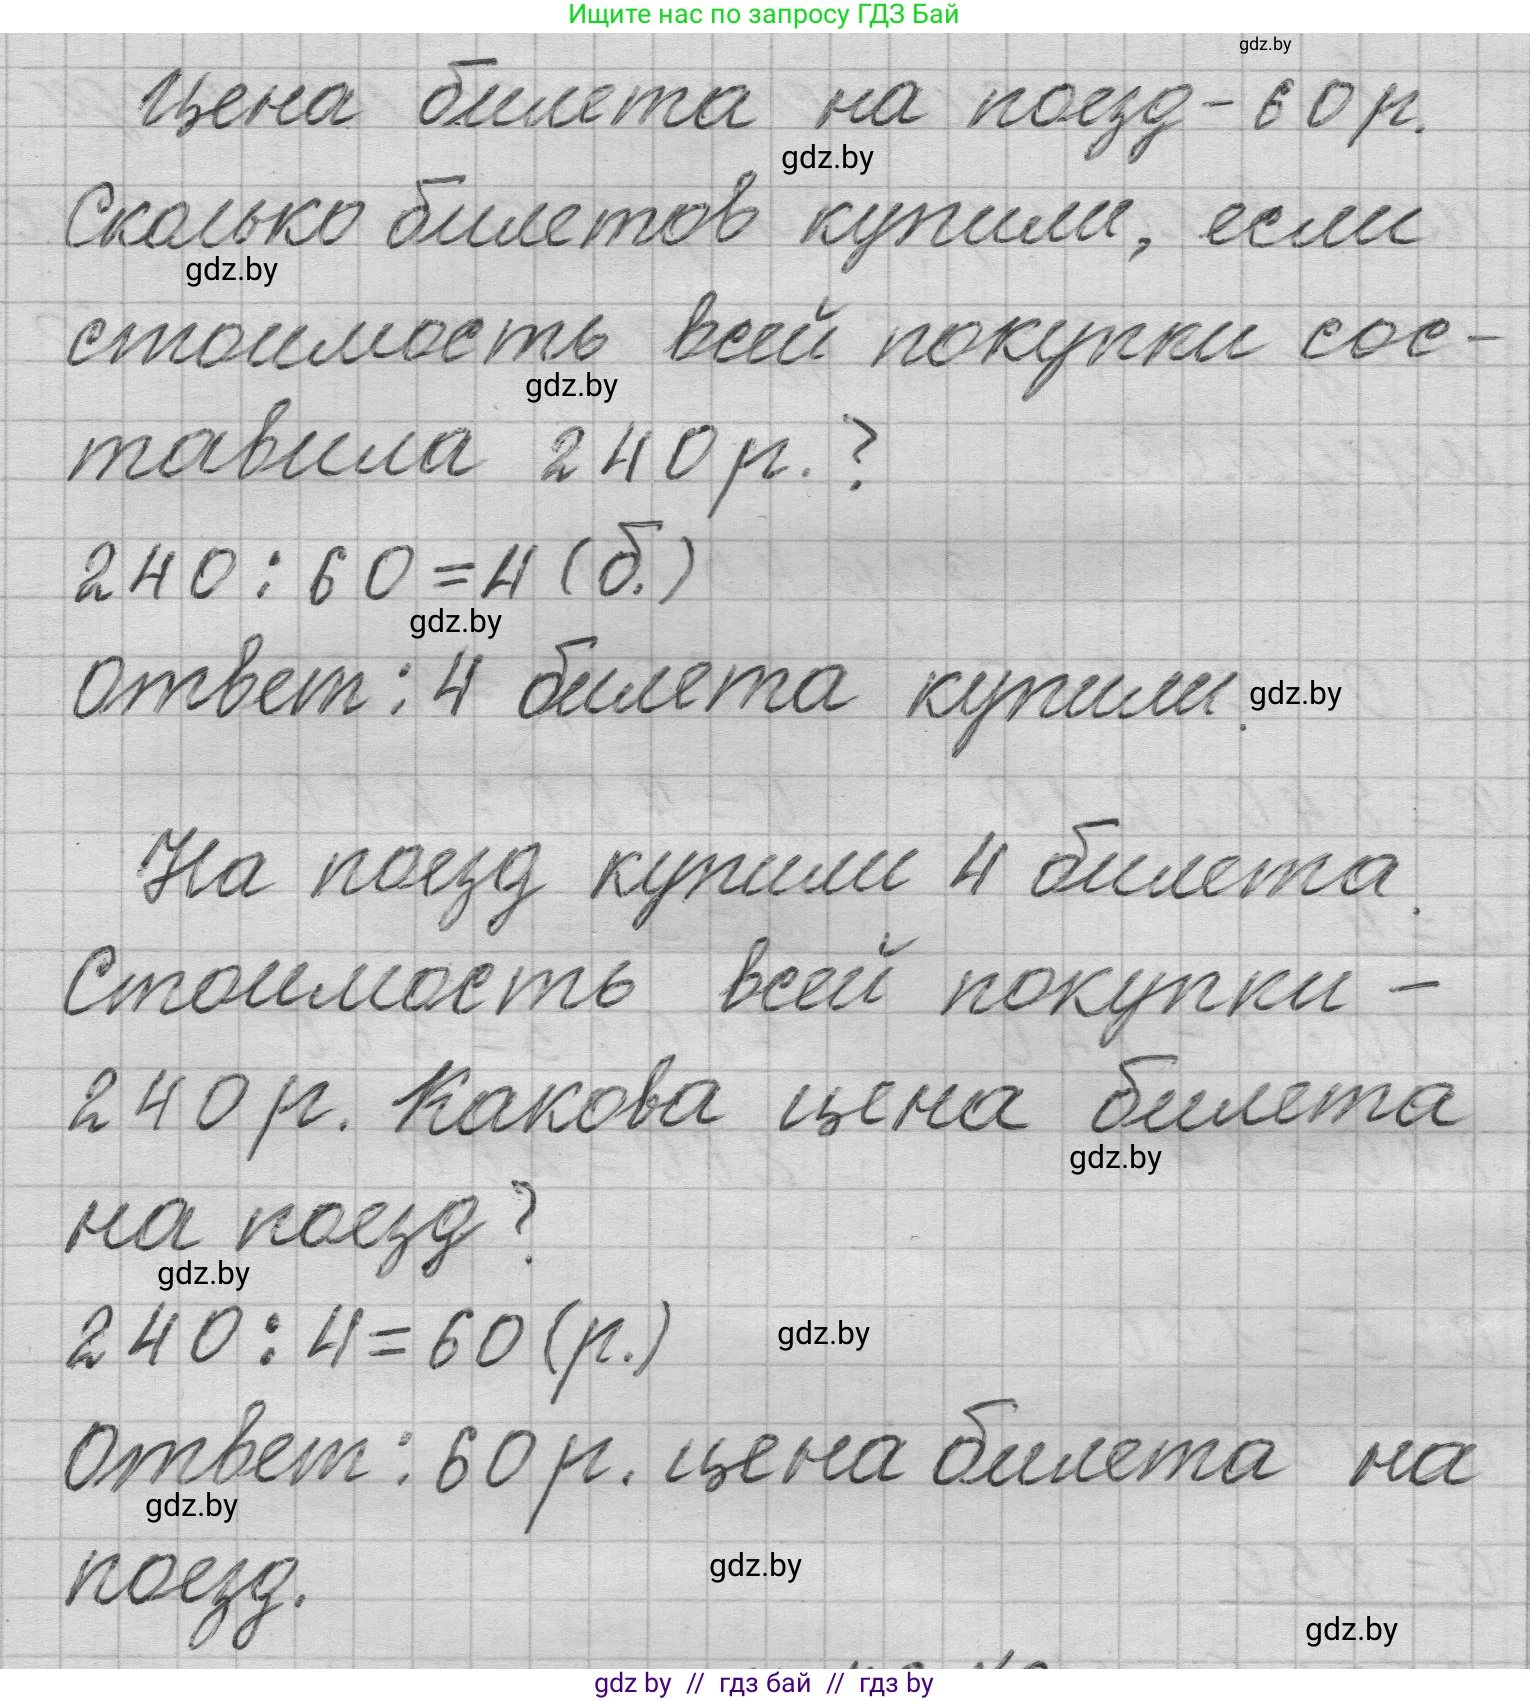 Ищите нас по запросу ГДЗ Бай
gdz.by
Цена билета на поезд - 60 р.
gdz.by
Сколько билетов купили, если
gdz.by
стоимость всей покупки сос-
gdz.by
тавила 240 р. ?
240 : 60 = 4 (б.)
gdz.by
Ответ: 4 билета купили.
gdz.by
На поезд купили 4 билета.
Стоимость всей покупки -
240 р. Какова цена билета
gdz.by
на поезд?
gdz.by
240 : 4 = 60 (р.)
gdz.by
Ответ: 60 р. цена билета на
gdz.by
поезд.
gdz.by
gdz.by
gdz by // гдз бай // гдз by